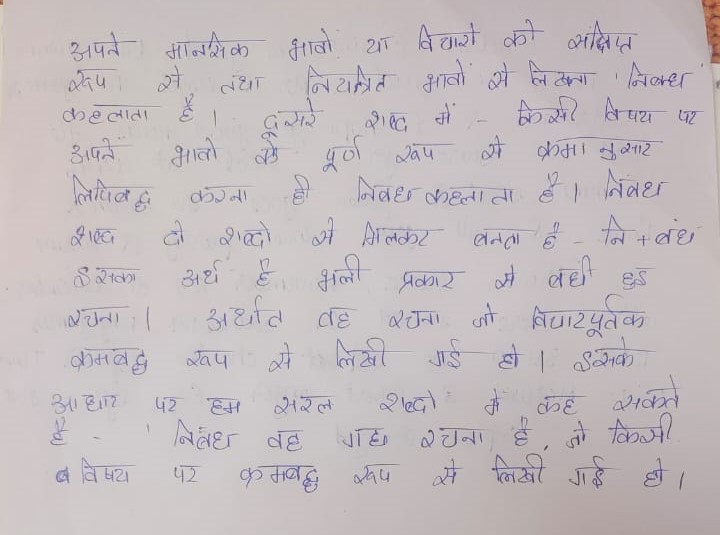 अपने मानसिक भावो या विचारो को संक्षिप्त
रूप से तथा नियत्रित भावों से लिखना 'निबंध
कहलाता है। दूसरे शब्द में - किसी विषय पर
अपने भावो को पूर्ण रूप से क्रमानुसार
लिपिबद्ध करना ही निबंध कहलाता है। निबंध
शब्द दो शब्दो से मिलकर बनता है - नि + बंध
इसका अर्थ है भली प्रकार से बंधी हुई
रचना। अर्थात वह रचना जो विचारपूर्तक
क्रमबद्ध रूप से लिखी गई हो। इसके
आधार पर हम सरल शब्दो मे कह सकते
है - 'निबंध वह गद्य रचना है, जो किसी
विषय पर क्रमबद्ध रूप से लिखी गई हो।